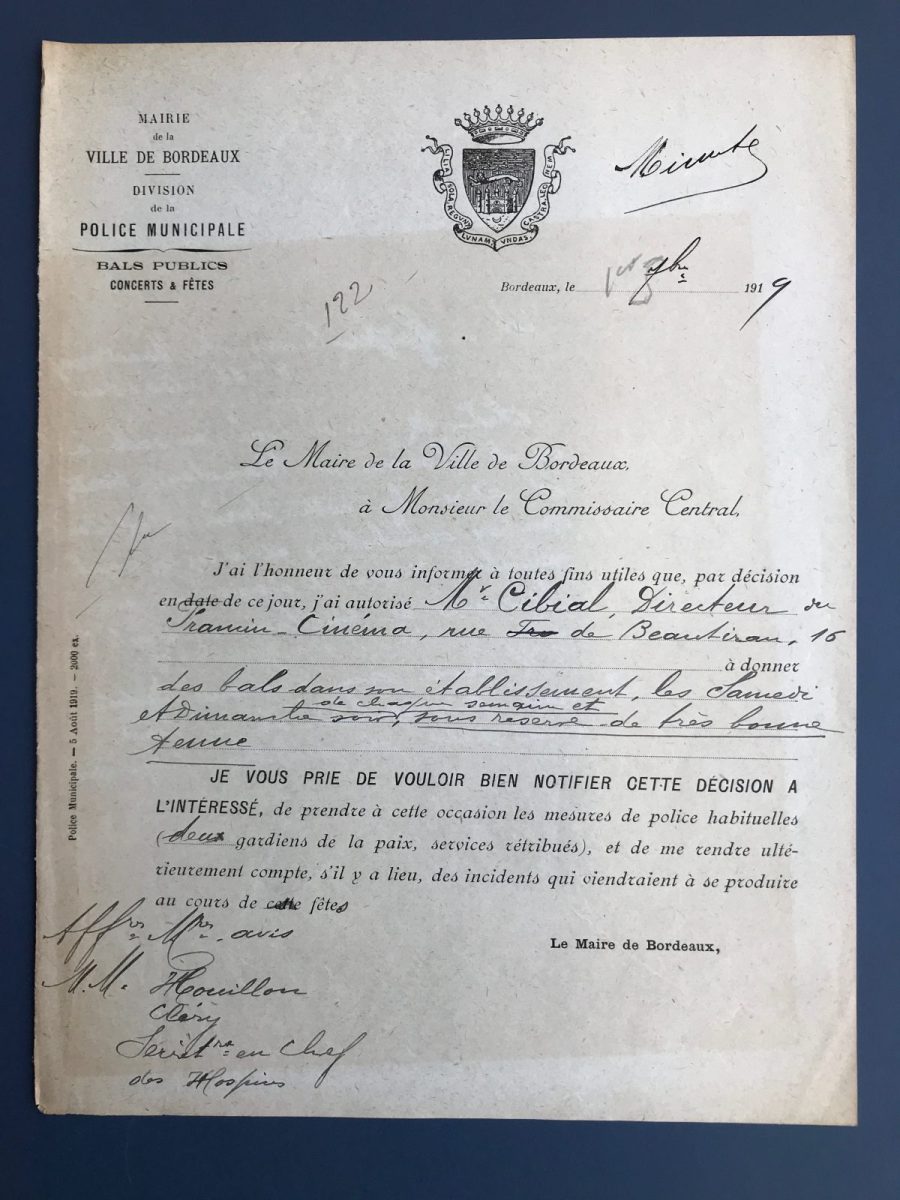 MAIRIE
de la
VILLE DE BORDEAUX
DIVISION
de la
POLICE MUNICIPALE
BALS PUBLICS
CONCERTS & FÊTES
LILIA SOLA REGUNT LVNAM VNDAS CASTRA LEONEM
Minute
122
Bordeaux, le 1er 7bre 1919
Le Maire de la Ville de Bordeaux,
à Monsieur le Commissaire Central,
J'ai l'honneur de vous informer à toutes fins utiles que, par décision
en date de ce jour, j'ai autorisé Mr Cibial, Directeur du
Trancin-Cinéma, rue de Beautiran, 16
à donner
des bals dans son établissement, les Samedi
de chaque semaine et
et Dimanche soir, sous réserve de très bonne
tenue
JE VOUS PRIE DE VOULOIR BIEN NOTIFIER CETTE DÉCISION A
L'INTÉRESSÉ, de prendre à cette occasion les mesures de police habituelles
(deux gardiens de la paix, services rétribués), et de me rendre ulté-
rieurement compte, s'il y a lieu, des incidents qui viendraient à se produire
au cours de cette fêtes
Le Maire de Bordeaux,
Affres Mres avis
M.M. Houillon
Cléry
en Chef
des Hospices
Police Municipale. — 5 Août 1919. — 2000 ex.